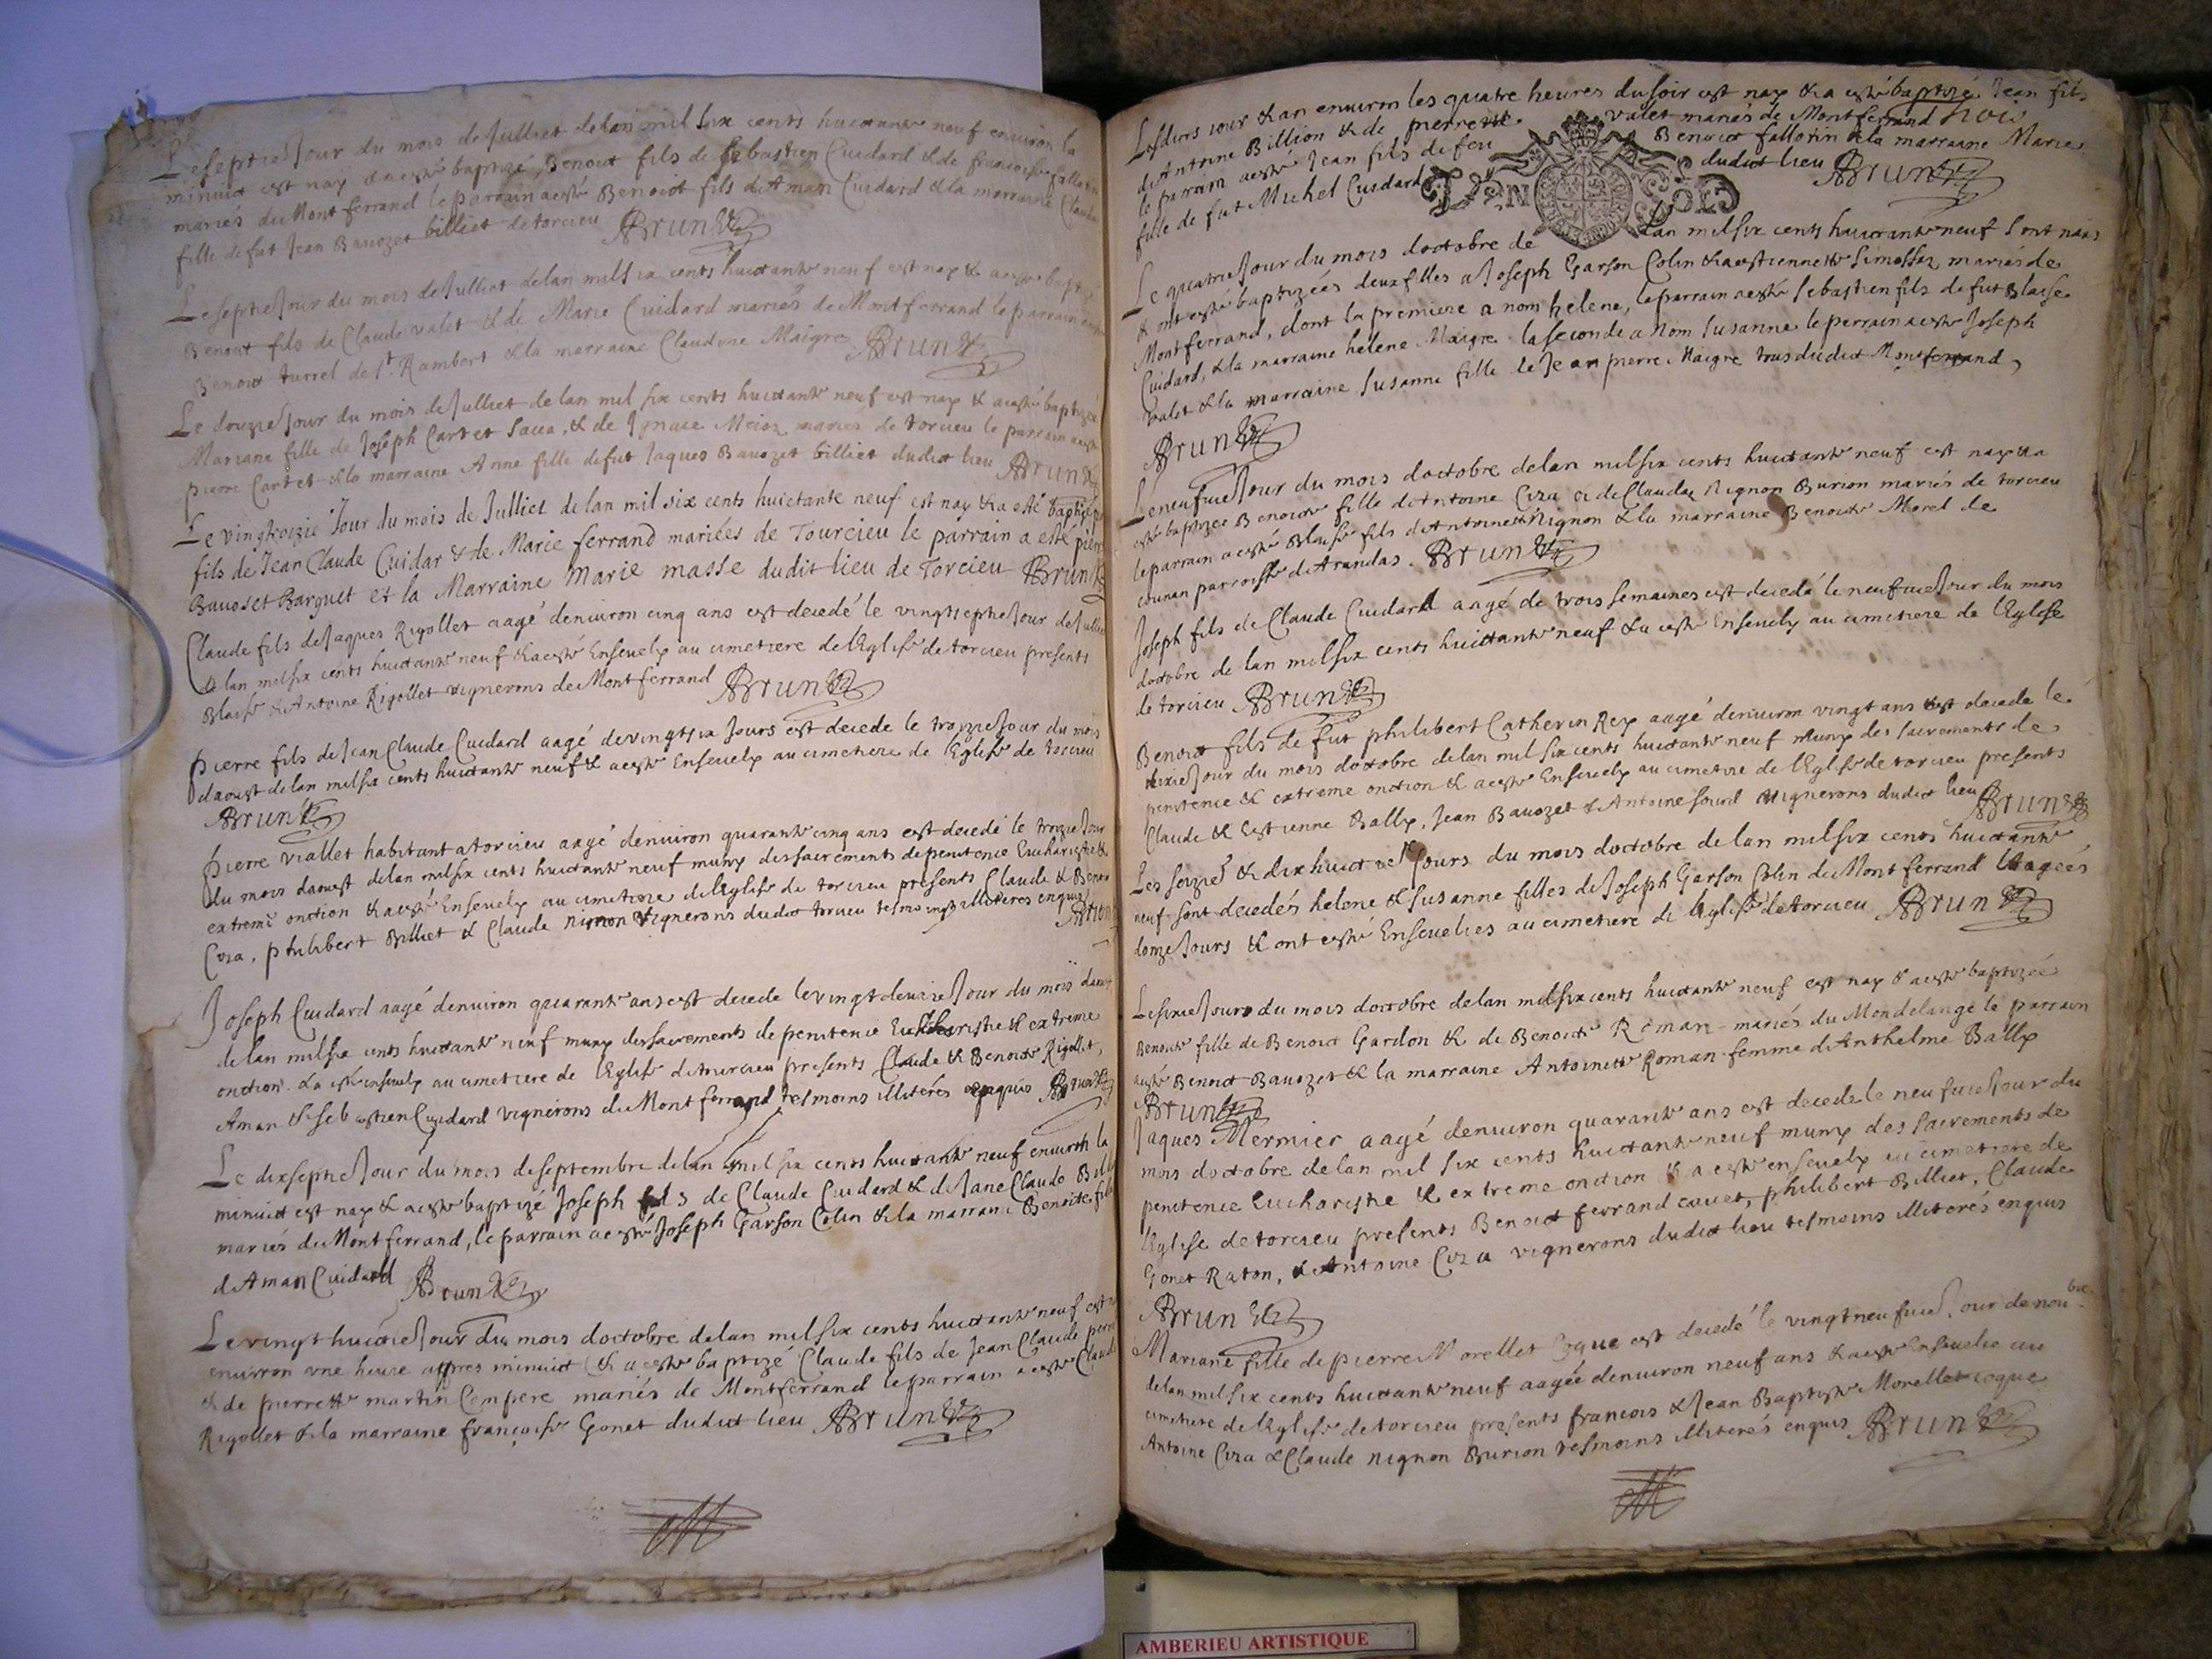 Le septie Jour du mois de Julliet de lan mil six cents huictante neuf environ la
minuict est nay & a esté baptizé Benoict fils de Sebastien Cuidard & de francoise fallotin
mariés du Montferrand le parrain a esté Benoict fils d'Aman Cuidard & la marraine Claudine
fille de fut Jean Bavozet billiet de torcieu Brun
Le septie Jour du mois de Julliet de lan mil six cents huictante neuf est nay & a esté baptizé
Benoict fils de Claude valet & de Marie Cuidard mariés de Montferrand le parrain
Benoict turrel de St Rambert & la marraine Claudine Maigre Brun
Le douzie Jour du mois de Julliet de lan mil six cents huictante neuf est nay & a esté baptizée
Mariane fille de Joseph Cartet & de mariés de torcieu le parrain a esté
pierre Cartet & la marraine Anne fille de fut Jaques Bavozet billiet dudict lieu Brun
Le vingtroizie Jour du mois de Julliet de lan mil six cents huictante neuf est nay & a esté baptizé
fils de Jean Claude Cuidar & de Marie ferrand mariées de Tourcieu le parrain a esté pierre
Bavoset Barquet et la Marraine Marie masse dudit lieu de Torcieu Brun
Claude fils de Jaques Rigollet aagé denviron cinq ans est decedé le vingtseptie Jour de Julliet
de lan mil six cents huictante neuf & a esté Ensevely au cimetiere de lEglise de torcieu presents
Blaise & Antoine Rigollet vignerons de Montferrand Brun
pierre fils de Jean Claude Cuidard aagé de vingt six Jours est decede le troizie Jour du mois
daoust de lan mil six cents huictante neuf & a esté Ensevely au cimetiere de lEglise de torcieu
Brun
pierre viallet habitant a torcieu aagé denviron quarante cinq ans est decedé le troizie Jour
du mois daoust de lan mil six cents huictante neuf muny des sacrements de penitence Eucharistie &
extreme onction & a esté Ensevely au cimetiere de lEglise de torcieu presents Claude & Benoict
Ciza, philibert Billiet & Claude nignon vignerons dudict torcieu tesmoings illiteres enquis
Brun
Joseph Cuidard aagé denviron quarante ans est decede le vingtdeuxie Jour du mois daoust
de lan mil six cents huictante neuf muny des sacrements de penitence Eucharistie & extreme
onction & a esté ensevely au cimetiere de lEglise de torcieu presents Claude & Benoict Rigollet,
Aman & Sebastien Cuidard vignerons du Montferrand tesmoins illiterés enquis Brun
Le dixseptie Jour du mois de septembre de lan mil six cents huictante neuf environ la
minuict est nay & a esté baptizé Joseph fils de Claude Cuidard & de Jane Claude
mariés du Montferrand, le parrain a esté Joseph Garson Colin & la marraine Benoicte fille
d'Aman Cuidard Brun
Le vingt huictie Jour du mois doctobre de lan mil six cents huictante neuf est
environ une heure appres minuict & a esté baptizé Claude fils de Jean Claude
& de pierrette martin Compere mariés de Montferrand le parrain a esté Claude
Rigollet & la marraine françoise Gonet dudict lieu Brun
Lesdicts iour & an environ les quatre heures du soir est nay & a esté baptizé Jean fils
d'Antoine Billion & de pierrette valet mariés de Montferrand
le parrain a esté Jean fils de feu Benoict fallotin & la marraine Marie
fille de fut Michel Cuidard dudict lieu Brun
Le quatrie Jour du mois doctobre de lan mil six cents huictante neuf sont nays
& ont esté baptizées deux filles a Joseph Garson Colin & a estiennette mariés de
Montferrand, dont la premiere a nom helene, le parrain a esté Sebastien fils de fut Blaise
Cuidard, & la marraine helene Maigre. la seconde a nom Susanne le perrain a esté Joseph
valet & la marraine Susanne fille de Jean pierre Maigre tous dudict Montferrand,
Brun
Le neufvie Jour du mois doctobre de lan mil six cents huictante neuf est nay & a
esté baptizée Benoicte fille d'Antoine Ciza & de Clauda Nignon Burion mariés de torcieu
le parrain a esté Blaise fils d'Antoine Nignon & la marraine Benoicte Morel de
counan parroisse d'Arandas. Brun
Joseph fils de Claude Cuidard aagé de trois semaines est decedé le neufvie Jour du mois
doctobre de lan mil six cents huictante neuf & a esté Ensevely au cimetiere de lEglise
de torcieu Brun
Benoict fils de fut philibert Catherin Rey aagé denviron vingt ans est decede le
Jour du mois doctobre de lan mil six cents huictante neuf muny des sacrements de
penitence & extreme onction & a esté Ensevely au cimetiere de lEglise de torcieu presents
Claude & Estienne Bally, Jean Bavozet & Antoine vignerons dudict lieu Brun
Les seizie & dixhuictie Jours du mois doctobre de lan mil six cents huictante
neuf sont decedés helene & Susanne filles de Joseph Garson Colin du Montferrand aagées
Jours & ont esté Ensevelies au cimetiere de lEglise de torcieu Brun
Le Jour du mois doctobre de lan mil six cents huictante neuf est nay & a esté baptizée
Benoicte fille de Benoict Gardon & de Benoicte Roman mariés du Mondelange le parrain
a esté Benoict Bavozet & la marraine Antoinette Roman femme d'Anthelme Bally
Brun
Jaques Mermier aagé denviron quarante ans est decede le neufvie Jour du
mois doctobre de lan mil six cents huictante neuf muny des sacrements de
penitence Eucharistie & extreme onction & a esté ensevely au cimetiere de
lEglise de torcieu presents Benoict ferrand cavet, philibert Billiet, Claude
Gonet Raton, & Antoine Ciza vignerons dudict lieu tesmoins illiterés enquis
Brun
Mariane fille de pierre Morellet Coque est decedé le vingtneufvie Jour de novbre
de lan mil six cents huictante neuf aagée denviron neuf ans & a esté Ensevelie au
cimetiere de lEglise de torcieu presents francois & Jean Baptiste Morellet coque
Antoine Ciza & Claude nignon Burion tesmoins illiterés enquis Brun
AMBERIEU ARTISTIQUE